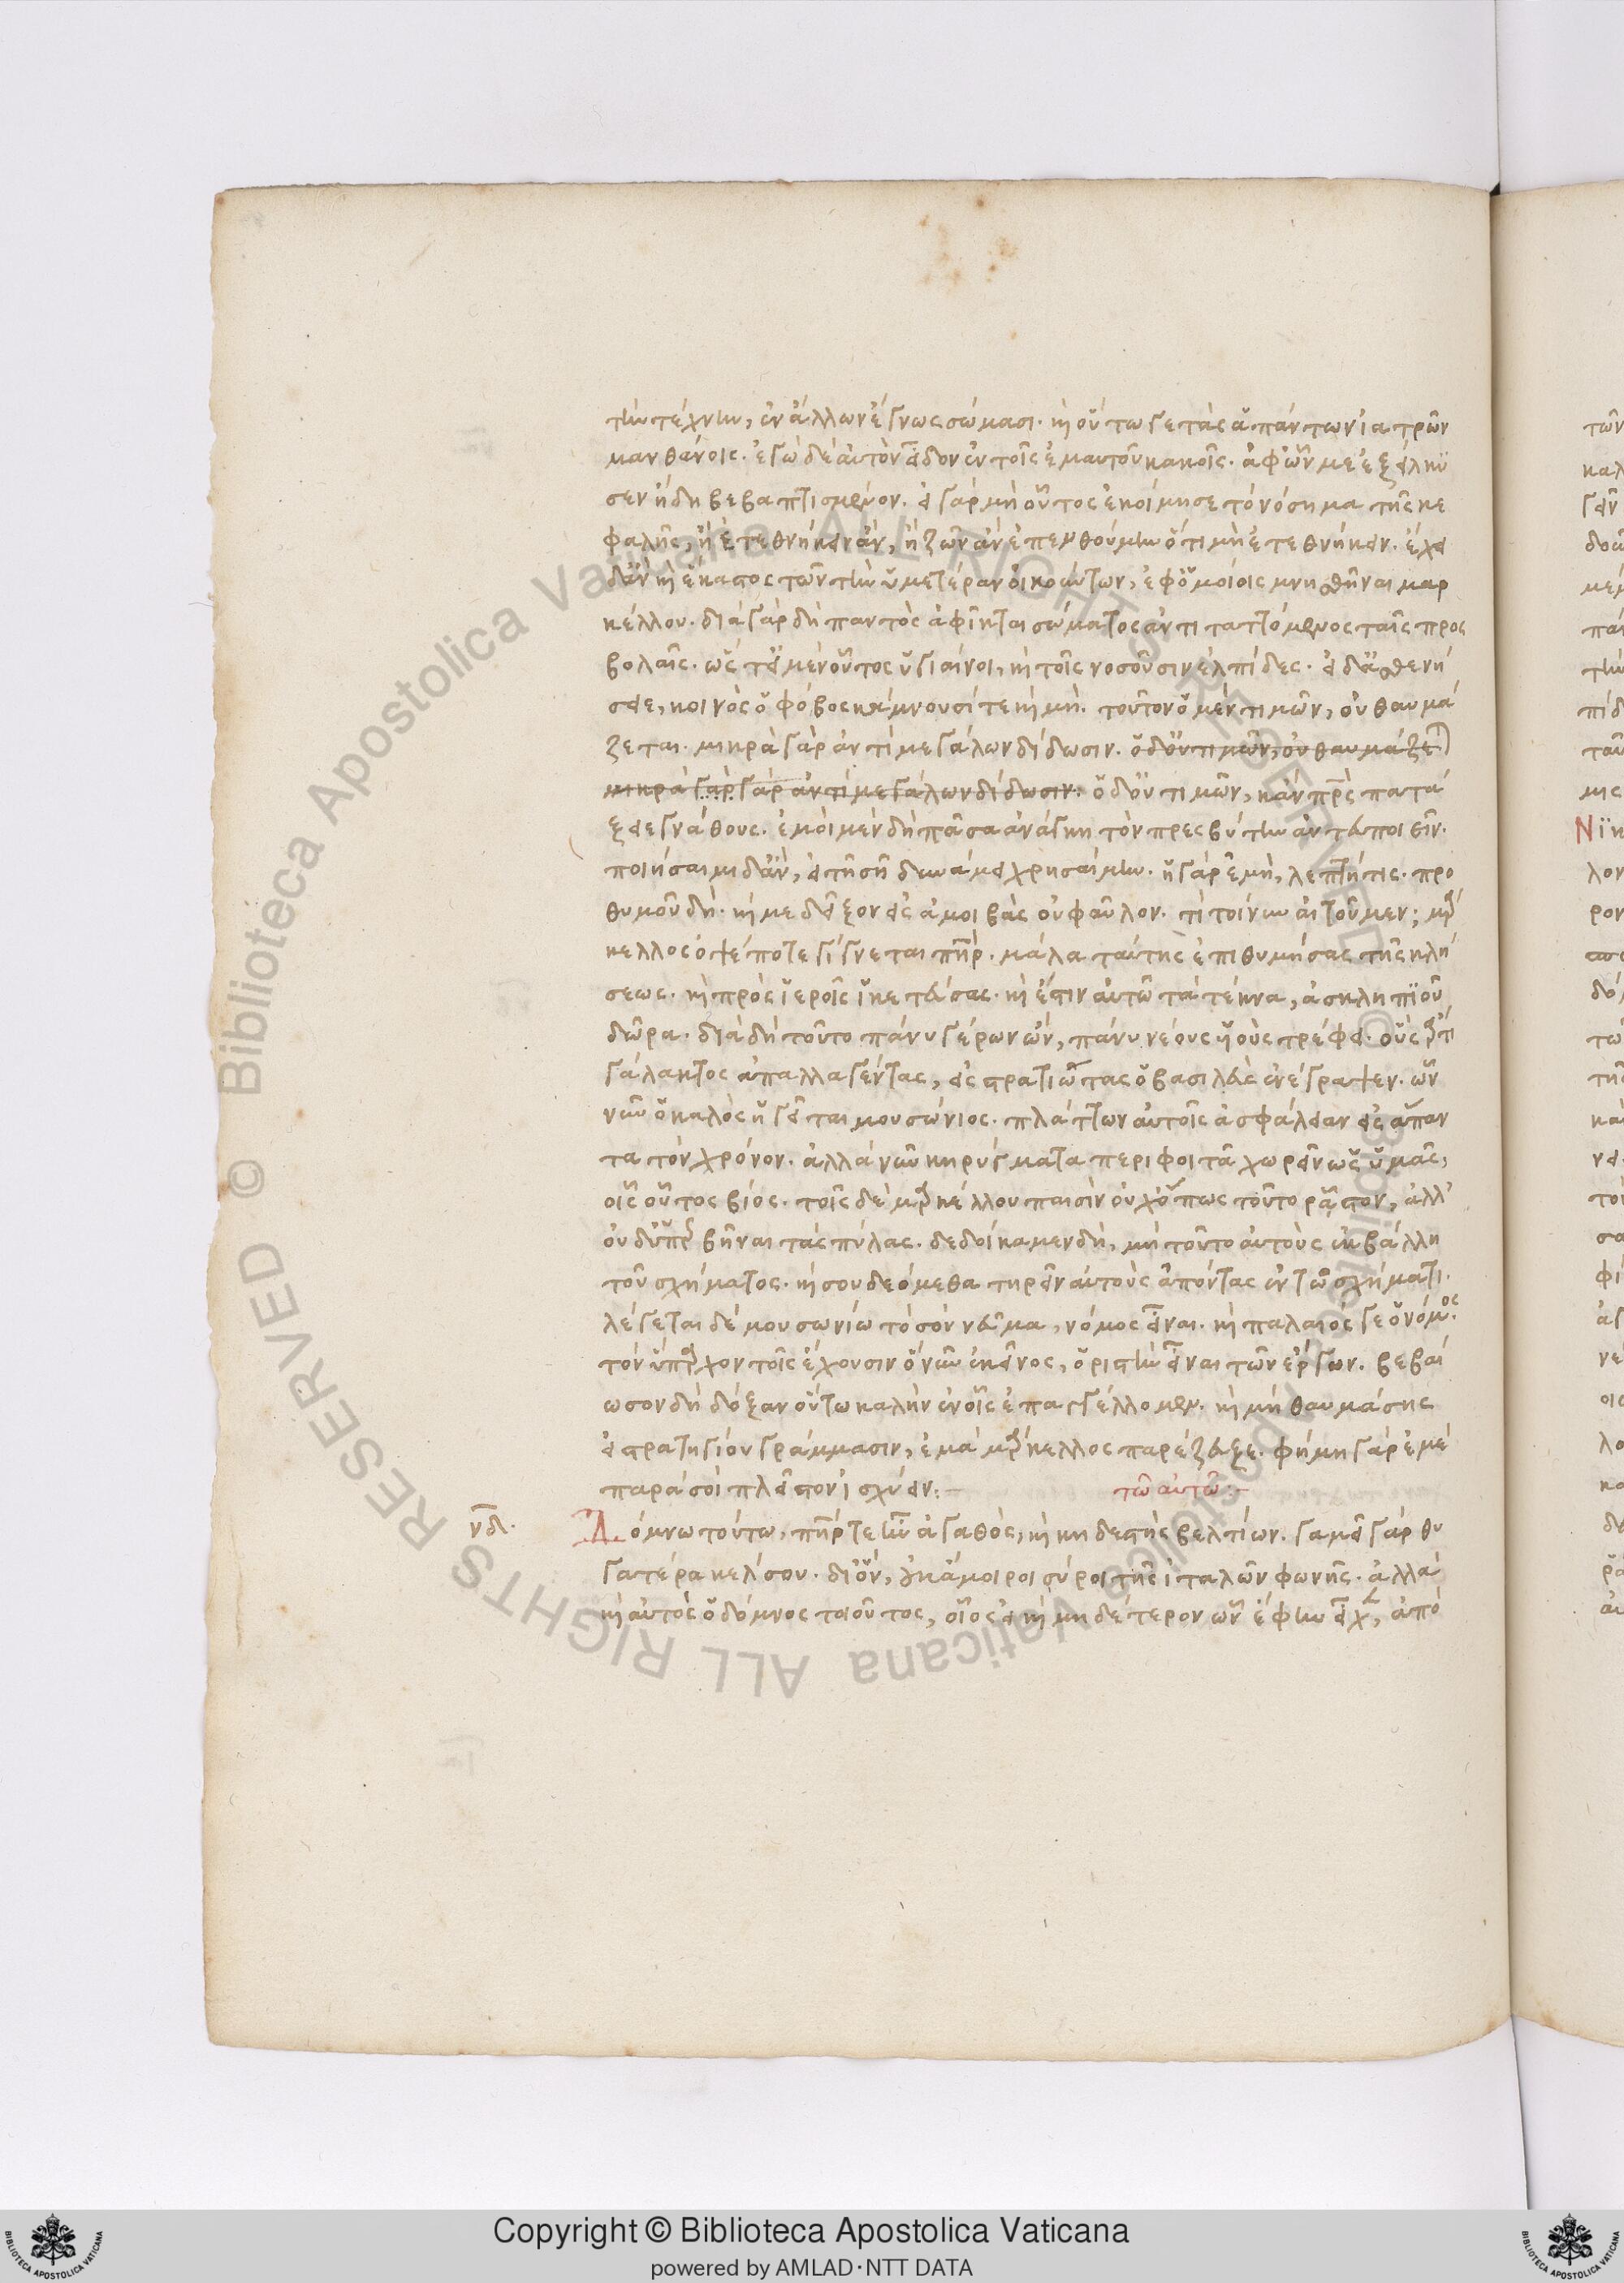 τὴν τέχνην, ἐν ἄλλων ἔγνως σώμασι. καὶ οὕτω γε τὰς ἁπάντων ἰατρῶν
μανθάνοις. ἐγὼ δὲ αὐτὸν εἶδον ἐν τοῖς ἐμαυτοῦ κακοῖς. ἀφ' ὧν με ἐξείλκυ
σεν ἤδη βεβαπτισμένον. εἰ γὰρ μὴ οὗτος ἐκοίμησε τὸ νόσημα τῆς κε
φαλῆς, ἢ ἐτεθνήκειν ἂν, ἢ ζῶν ἂν ἐπενθούμην ὅτι μὴ ἐτεθνήκειν. ἔχει
δ' ἂν καὶ ἕκαστος τῶν τὴν ὑμετέραν οἰκούντων, ἐφ' ὁμοίοις μνησθῆναι μαρ
κέλλου. διὰ γὰρ δὴ παντὸς ἀφῖκται σώματος ἀντιταττόμενος ταῖς προς
βολαῖς. ὥστ' εἰ μὲν οὗτος ὑγιαίνοι, καὶ τοῖς νοσοῦσιν ἐλπίδες. εἰ δ' ἀσθενή
σειε, κοινὸς ὁ φόβος κάμνουσί τε καὶ μή. τοῦτον ὁ μὲν τιμῶν, οὐ θαυμά
ζεται. μικρὰ γὰρ ἀντὶ μεγάλων δίδωσιν. ὁ δ' οὐ τιμῶν, οὐ θαυμάζεται
μικρὰ γὰρ γὰρ ἀντὶ μεγάλων δίδωσιν. ὁ δ' οὐ τιμῶν, κἂν πατέρας πατά
ξειε γνάθους. ἐμοὶ μὲν δὴ πᾶσα ἀνάγκη τὸν πρεσβύτην ἀντευποιεῖν.
ποιήσαιμι δ' ἂν, εἰ τῇ σῇ δυνάμει χρησαίμην. ἡ γὰρ ἐμὴ, λεπτή τις. προ
θυμοῦ δὴ. καί με δεῖξον εἰς ἀμοιβὰς οὐ φαῦλον. τί τοίνυν αἰτοῦμεν; μάρ
κελλος ὀψέ ποτε γίγνεται πατήρ. μάλα ταύτης ἐπιθυμήσας τῆς κλή
σεως. καὶ πρὸς ἱεροῖς ἱκετεύσας. καὶ ἔστιν αὐτῶ τὰ τέκνα, ἀσκληπιοῦ
δῶρα. διὰ δὴ τοῦτο πάνυ γέρων ὢν, πάνυ νέους υἱοὺς τρέφει. οὓς ἄρτι
γάλακτος ἀπαλλαγέντας, εἰς στρατιώτας ὁ βασιλεὺς ἐνέγραψεν. ὧν
νῦν ὁ καλὸς ἡγεῖται μουσώνιος. πλάττων αὐτοῖς ἀσφάλειαν εἰς ἅπαν
τα τὸν χρόνον. ἀλλὰ νῦν κηρύγματα περιφοιτᾶ χωρεῖν ὡς ὑμᾶς,
οἷς οὗτος βίος. τοῖς δὲ μαρκέλλου παισὶν οὐχ ὅπως τοῦτο ρᾶστον, ἀλλ'
οὐδ' ὑπερβῆναι τὰς πύλας. δεδοίκαμεν δὴ, μὴ τοῦτο αὐτοὺς ἐκβάλλη
τοῦ σχήματος. καὶ σου δεόμεθα τηρεῖν αὐτοὺς ἀπόντας ἐν τῶ σχήματι.
λέγεται δὲ μουσωνίω τὸ σὸν νεῦμα, νόμος εἶναι. καὶ παλαιός γε ὁ νόμος.
τὸν ὕπαρχον τοῖς ἔχουσιν ὃ νῦν ἐκεῖνος, ὁριστὴν εἶναι τῶν ἔργων. βεβαί
ωσον δὴ δόξαν οὕτω καλὴν ἐν οἷς ἐπαγγέλλομεν. καὶ μὴ θαυμάσης
εἰ στρατηγίου γράμμασιν, ἐμὰ μάρκελλος παρέζευξε. φήμη γὰρ ἐμὲ
παρὰ σοὶ πλεῖστον ἰσχύειν:—
τῶ αὐτῶ:—
νδ.
Δόμνω τούτω, πατήρ τε ἦν ἀγαθός, καὶ κηδεστὴς βελτίων. γαμεῖ γὰρ θυ
γατέρα κελίσου. δι' ὃν, οὐκ ἄμοιροι σύροι τῆς ἰταλῶν φωνῆς. ἀλλὰ
καὶ αὐτὸς ὁ δόμνος τοιοῦτος, οἷος εἰ καὶ μηδέτερον ὧν ἔφην εἶχε, ἀπὸ
Copyright © Biblioteca Apostolica Vaticana
powered by AMLAD·NTT DATA